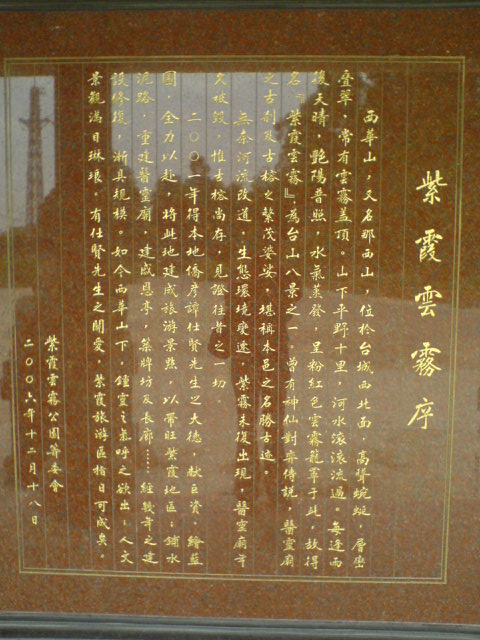 紫霞雲霧序
西華山，又名那西山，位於台城西北面，高聳蜿蜒，層巒
疊翠，常有雲霧蓋頂。山下平野十里，河水滾滾流過。每逢雨
後天晴，艷陽普照，水氣蒸發，呈粉紅色雲霧籠罩于此，故得
名『紫霞雲霧』，為台山八景之一。曾有神仙對弈傳說，醫靈廟
之古剎及古榕之繁茂婆娑，堪稱本邑之名勝古迹。
無奈河流改道，生態環境變遷，紫霧未復出現，醫靈廟年
久破毀，惟古榕尚存，見證往昔之一切。
二〇〇一年得本地僑彥譚仕賢先生之大德，獻巨資，繪藍
圖，全力以赴，將此地建成旅游景點，以帶旺紫霞地區；鋪水
泥路，重建醫靈廟，建成恩亭，築牌坊及長廊……經幾年之建
設修復，漸具規模。如今西華山下，鍾靈之氣呼之欲出；人文
景觀滿目琳琅。有仕賢先生之關愛，紫霞旅游區指日可成矣。
紫霞雲霧公園籌委會
二〇〇六年十二月十八日